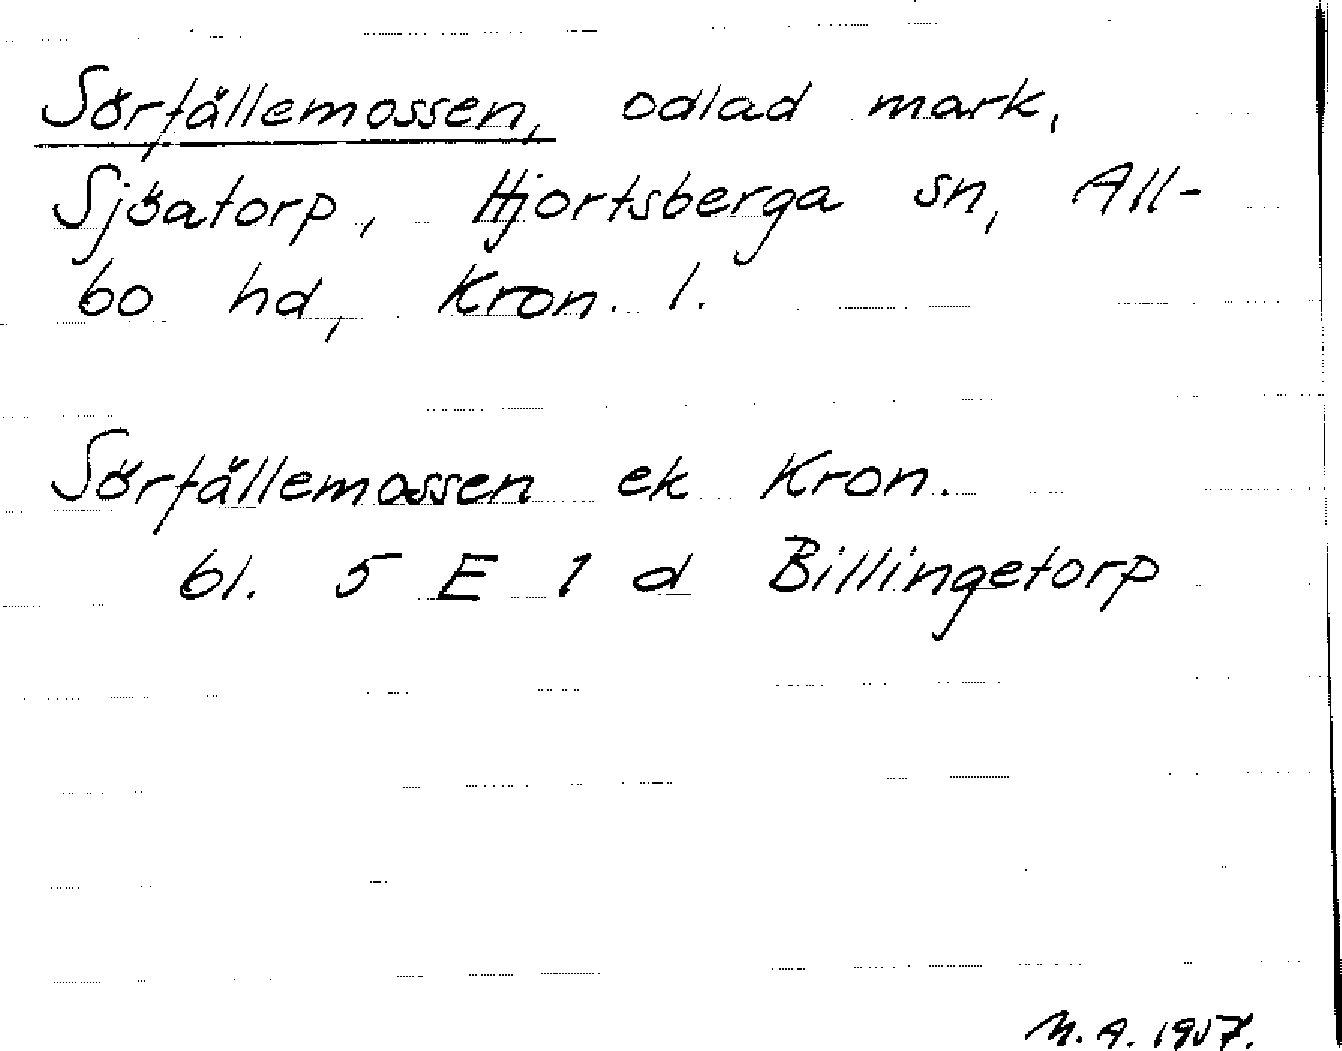 Sörfällemossen, odlad mark,
Sjöatorp, Hjortsberga sn, All-
bo hd, Kron. l.
Sörfällemossen ek Kron.
bl. 5 E 1 d Billingetorp
M. A. 1957.